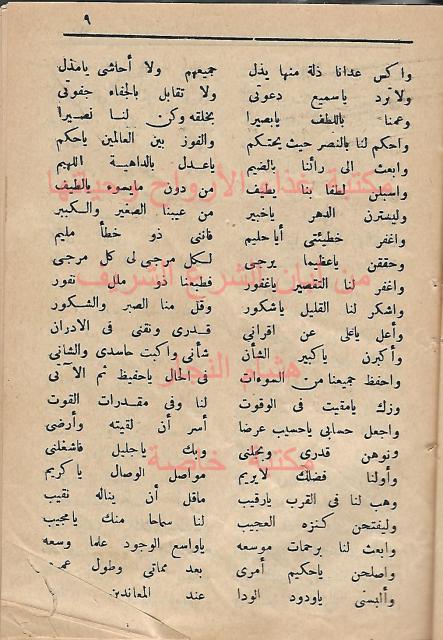 ٩
واكس عدانا ذلة منها يذل جميعهم ولا أحاشى يامذل
ولا ترد ياسميع دعوتى ولا تقابل بالجفاء جفوتى
وعمنا باللطف يابصيرا بخلقه وكن لنا نصيرا
واحكم لنا بالنصر حيث يحتكم والفوز بين العالمين ياحكم
وابعث الى رائنا بالضيم ياعدل بالداهية اللهيم
واسبلن لطفا بنا يطيف من دون مايسوء يالطيف
وليسترن الدهر ياخبير من عيبنا الصغير والكبير
واغفر خطيئتى أيا حليم فاننى ذو خطأ مليم
وحققن ياعظيما يرجى لكل مرجى لى كل مرجى
واغفر لنا التقصير ياغفور فطبعنا ذو ملل نفور
واشكر لنا القليل ياشكور وقل منا الصبر والشكور
وأعل ياعلى عن اقرانى قدرى ونقنى فى الادران
وأكبرن ياكبير الشأن شأنى واكبت حاسدى والشانى
واحفظ جميعنا من السوءات فى الحال ياحفيظ ثم الآتى
وزك يامقيت فى الوقوت لنا وفى مقدرات القوت
واجعل حسابى ياحسيب عرضا أسر أن لقيته وأرضى
ونوهن قدرى وبجلنى وبك ياجليل فاشغلنى
وأولنا فضلك لايريم مواصل الوصال ياكريم
وهب لنا فى القرب يارقيب ماقل أن يناله نقيب
وليفتحن كنزه العجيب لنا سماحا منك يامجيب
وابعث لنا برحمات موسعه ياواسع الوجود علما وسعه
واصلحن ياحكيم أمرى بعد مماتى وطول
وألبسنى ياودود الودا عند المعاندين
مكتبة غذاء الأرواح وحياتها
من لبان الشرع الشريف
هشام النجار
مكتبة خاصة